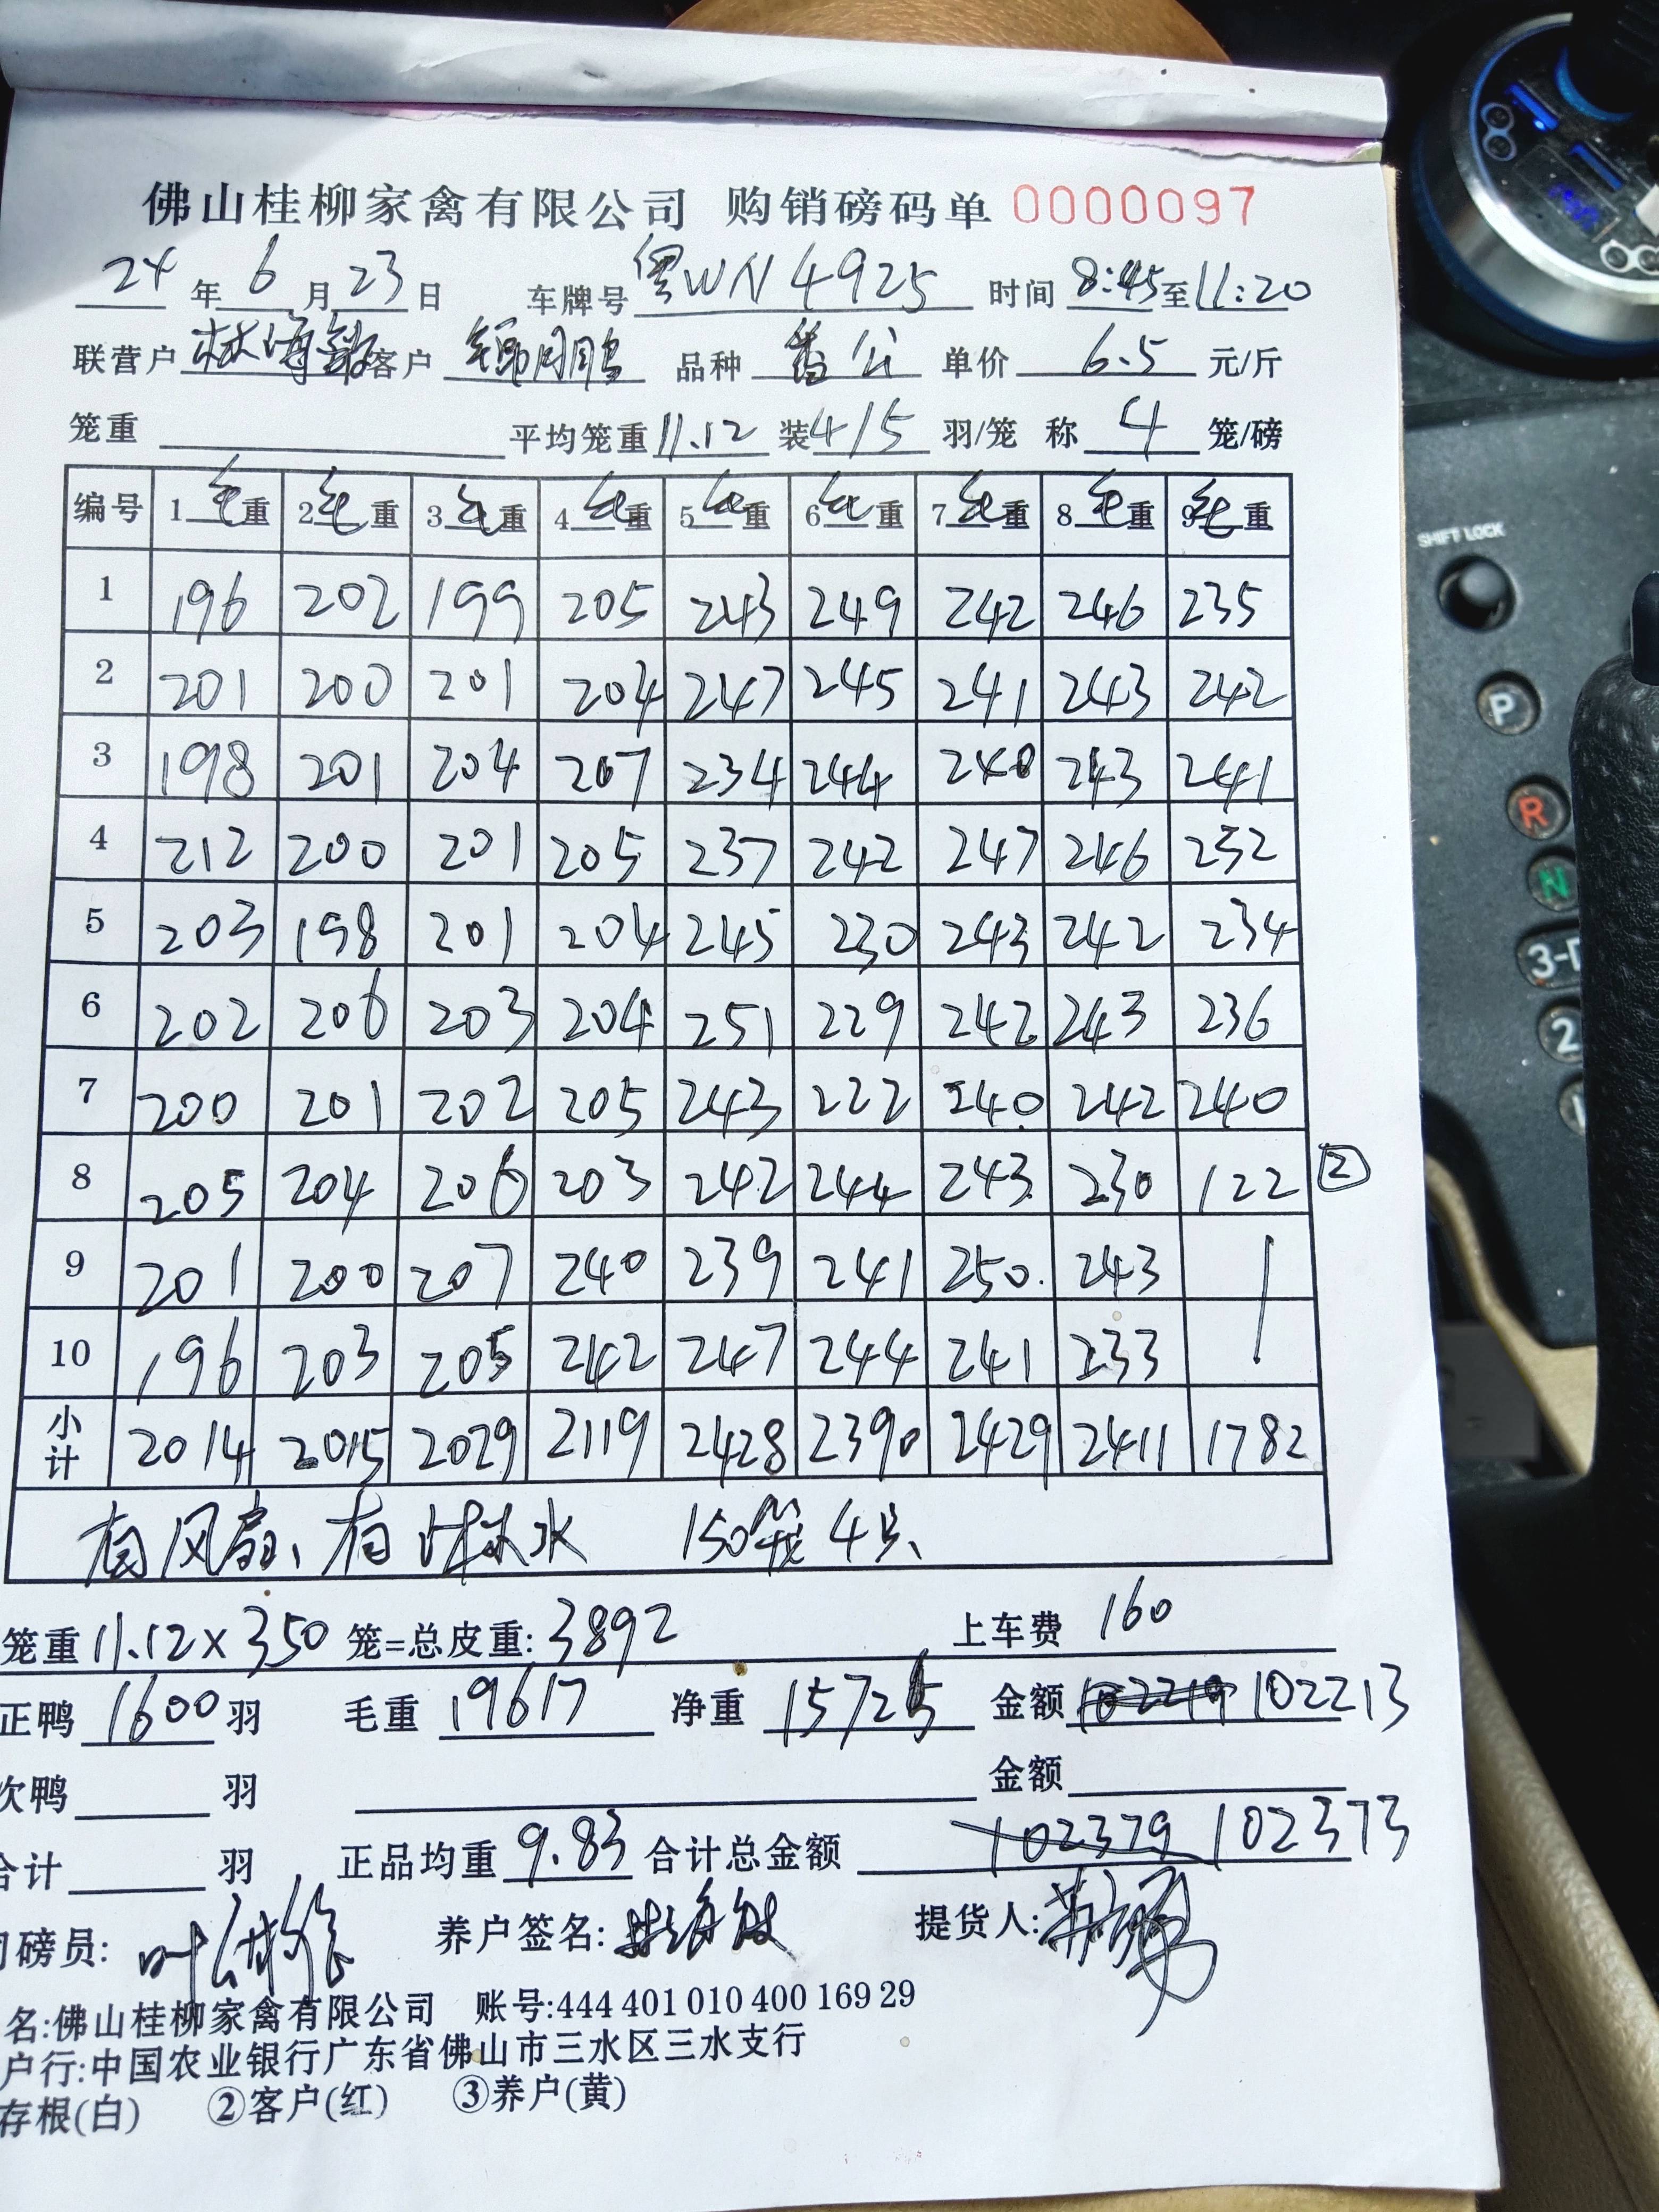 佛山桂柳家禽有限公司 购销磅码单 0000097
24 年 6 月 23 日 车牌号 粤WN4925 时间 8:45 至 11:20
联营户 林海敏 客户 鹏 品种 番公 单价 6.5 元/斤
笼重 平均笼重 11.12 装 4/5 羽/笼 称 4 笼/磅
编号 1 毛 重 2 毛 重 3 毛 重 4 毛 重 5 毛 重 6 毛 重 7 毛 重 8 毛 重 9 毛 重
1 196 202 199 205 243 249 242 246 235
2 201 200 201 204 247 245 241 243 242
3 198 201 204 207 234 244 240 243 241
4 212 200 201 205 237 242 247 246 232
5 203 198 201 204 245 230 243 242 234
6 202 206 203 204 251 229 242 243 236
7 200 201 202 205 243 222 240 242 240
8 205 204 206 203 242 244 243 230 122 ②
9 201 200 207 240 239 241 250 243
10 196 203 205 242 247 244 241 233
小计 2014 2015 2029 2119 2428 2390 2429 2411 1782
有风扇、有淋水 150笼4只
笼重 11.12×350 笼=总皮重: 3892 上车费 160
正鸭 1600 羽 毛重 19617 净重 15725 金额 102219 102213
次鸭 羽 金额
合计 羽 正品均重 9.83 合计总金额 102379 102373
司磅员: 养户签名: 林海敏 提货人:
名:佛山桂柳家禽有限公司 账号:444 401 010 400 169 29
户行:中国农业银行广东省佛山市三水区三水支行
存根(白) ②客户(红) ③养户(黄)
SHIFT LOCK
P
R
N
2